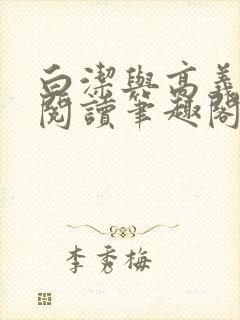 白潔與高義
閱讀筆趣閣
李秀梅